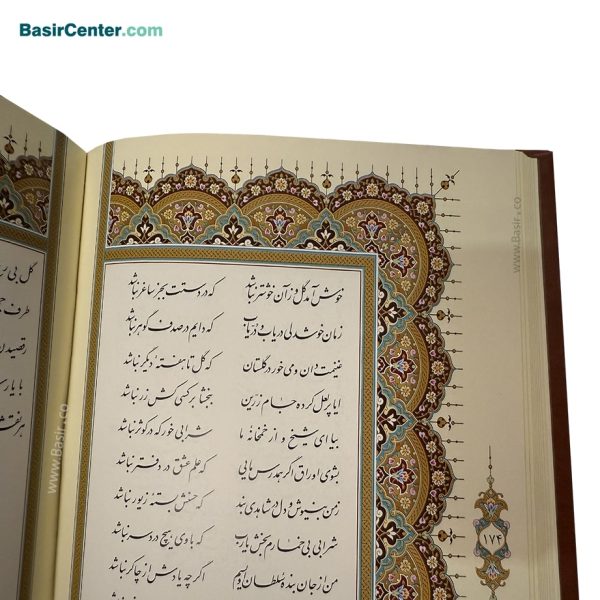 BasirCenter.com
خوش آمد گل وز آن خوشتر نباشد که در دستت بجز ساغر نباشد
زمان خوشدلی دریاب و دریاب که دایم در صدف گوهر نباشد
غنیمت دان و می خور در گلستان که گل تا هفته دیگر نباشد
ایا پرلعل کرده جام زرین ببخشا بر کسی کش زر نباشد
بیا ای شیخ و از خمخانه ما شرابی خور که در کوثر نباشد
بشوی اوراق اگر همدرس مایی که علم عشق در دفتر نباشد
ز من بنیوش و دل در شاهدی بند که حسنش بسته زیور نباشد
شرابی بی خمارم بخش یارب که با وی هیچ درد سر نباشد
من از جان بنده سلطان اویسم اگرچه یادش از چاکر نباشد
۱۷۴
گل بی
طرف
رقصیدن
با یار
هر نقش
www.Basir.co
www.Basir.co